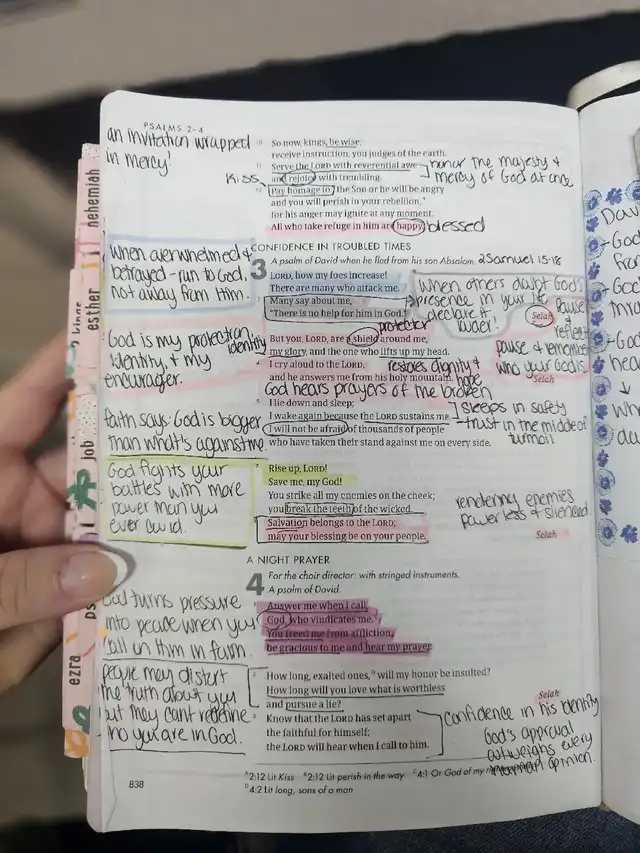 PSALMS 2-4
an invitation wrapped
in mercy!
10 So now, kings, be wise;
receive instruction, you judges of the earth.
11 Serve the LORD with reverential awe
Kiss and rejoice with trembling.
honor the majesty &
mercy of God at once
12 Pay homage to the Son or he will be angry
and you will perish in your rebellion,B
for his anger may ignite at any moment.
All who take refuge in him are happy. blessed
CONFIDENCE IN TROUBLED TIMES
3 A psalm of David when he fled from his son Absalom. 2 Samuel 15-18
when overwhelmed &
betrayed - run to God,
not away from Him.
LORD, how my foes increase!
There are many who attack me.
2 Many say about me,
"There is no help for him in God."
Selah
when others doubt God's
presence in your life
declare it
louder!
Pause
&
reflect
God is my protection,
identity, & my
encourager.
protector
identity
3 But you, LORD, are a shield around me,
my glory, and the one who lifts up my head.
restores dignity &
hope
4 I cry aloud to the LORD,
and he answers me from his holy mountain.
Selah
pause & remember
who your God is
God hears prayers of the broken
5 I lie down and sleep;
I wake again because the LORD sustains me.
6 I will not be afraid of thousands of people
who have taken their stand against me on every side.
sleeps in safety
trust in the middle of
turmoil
faith says: God is bigger
than what's against me.
God fights your
battles with more
power than you
ever could.
7 Rise up, LORD!
Save me, my God!
You strike all my enemies on the cheek;
you break the teeth of the wicked.
8 Salvation belongs to the LORD;
may your blessing be on your people.
Selah
rendering enemies
powerless & silenced
A NIGHT PRAYER
4 For the choir director: with stringed instruments.
A psalm of David.
God turns pressure
into peace when you
call on Him in faith.
1 Answer me when I call,
God, who vindicates me.C
You freed me from affliction;
be gracious to me and hear my prayer.
people may distort
the truth about you
but they can't redefine
who you are in God.
2 How long, exalted ones,D will my honor be insulted?
How long will you love what is worthless
and pursue a lie?
Selah
3 Know that the LORD has set apart
the faithful for himself;
the LORD will hear when I call to him.
confidence in his identity
God's approval
outweighs every
opinion.
838
A2:12 Lit Kiss B2:12 Lit perish in the way C4:1 Or God of my
D4:2 Lit long, sons of a man
nehemiah
esther
job
ezra